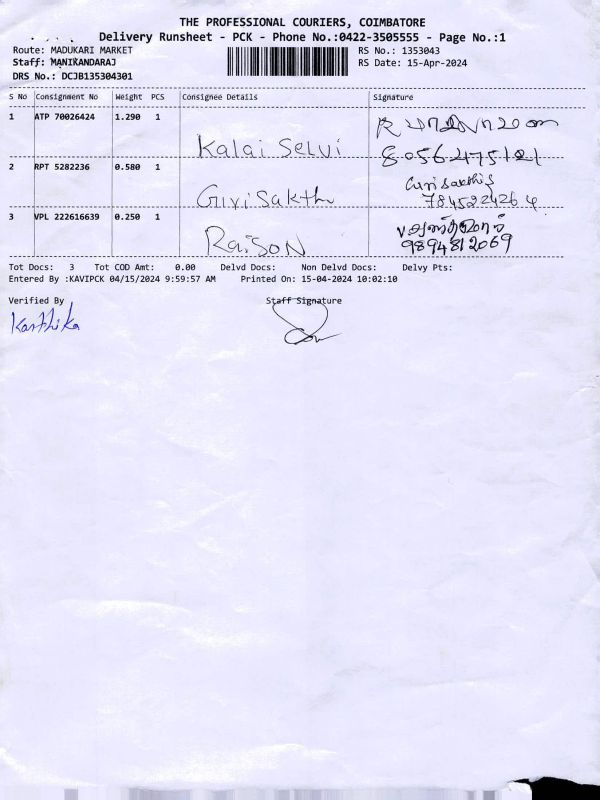 THE PROFESSIONAL COURIERS, COIMBATORE
Delivery Runsheet - PCK - Phone No.:0422-3505555 - Page No.:1
Route: MADUKARI MARKET RS No.: 1353043
Staff: MANIKANDARAJ RS Date: 15-Apr-2024
DRS No.: DCJB135304301
S No Consignment No Weight PCS Consignee Details Signature
1 ATP 70026424 1.290 1
Kalai Selvi 8056475121
2 RPT 5282236 0.580 1 Guri sakthi
Guri Sakthi 784522426 4
3 VPL 222616639 0.250 1
RaiSON 9894812069
Tot Docs: 3 Tot COD Amt: 0.00 Delvd Docs: Non Delvd Docs: Delvy Pts:
Entered By :KAVIPCK 04/15/2024 9:59:57 AM Printed On: 15-04-2024 10:02:10
Verified By Staff Signature
Karthika